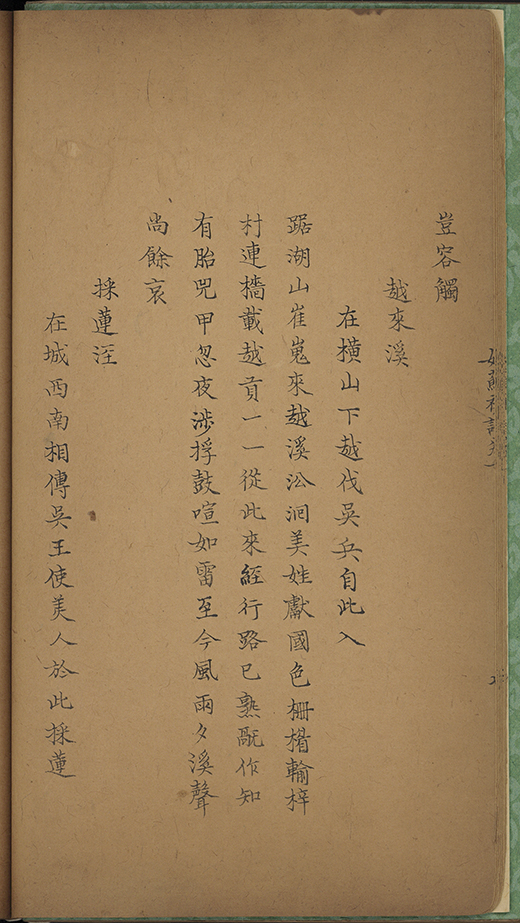 豈容觸
越來溪
在橫山下越伐吳兵自此入
踞湖山崔嵬來越溪㳂洄美姓獻國色柵楷輸梓
村連檣載越貢一一從此來經行路已熟翫作知
有胎兕甲忽夜涉捊鼓喧如雷至今風雨夕溪聲
尚餘哀
採蓮涇
在城西南相傳吳王使美人於此採蓮